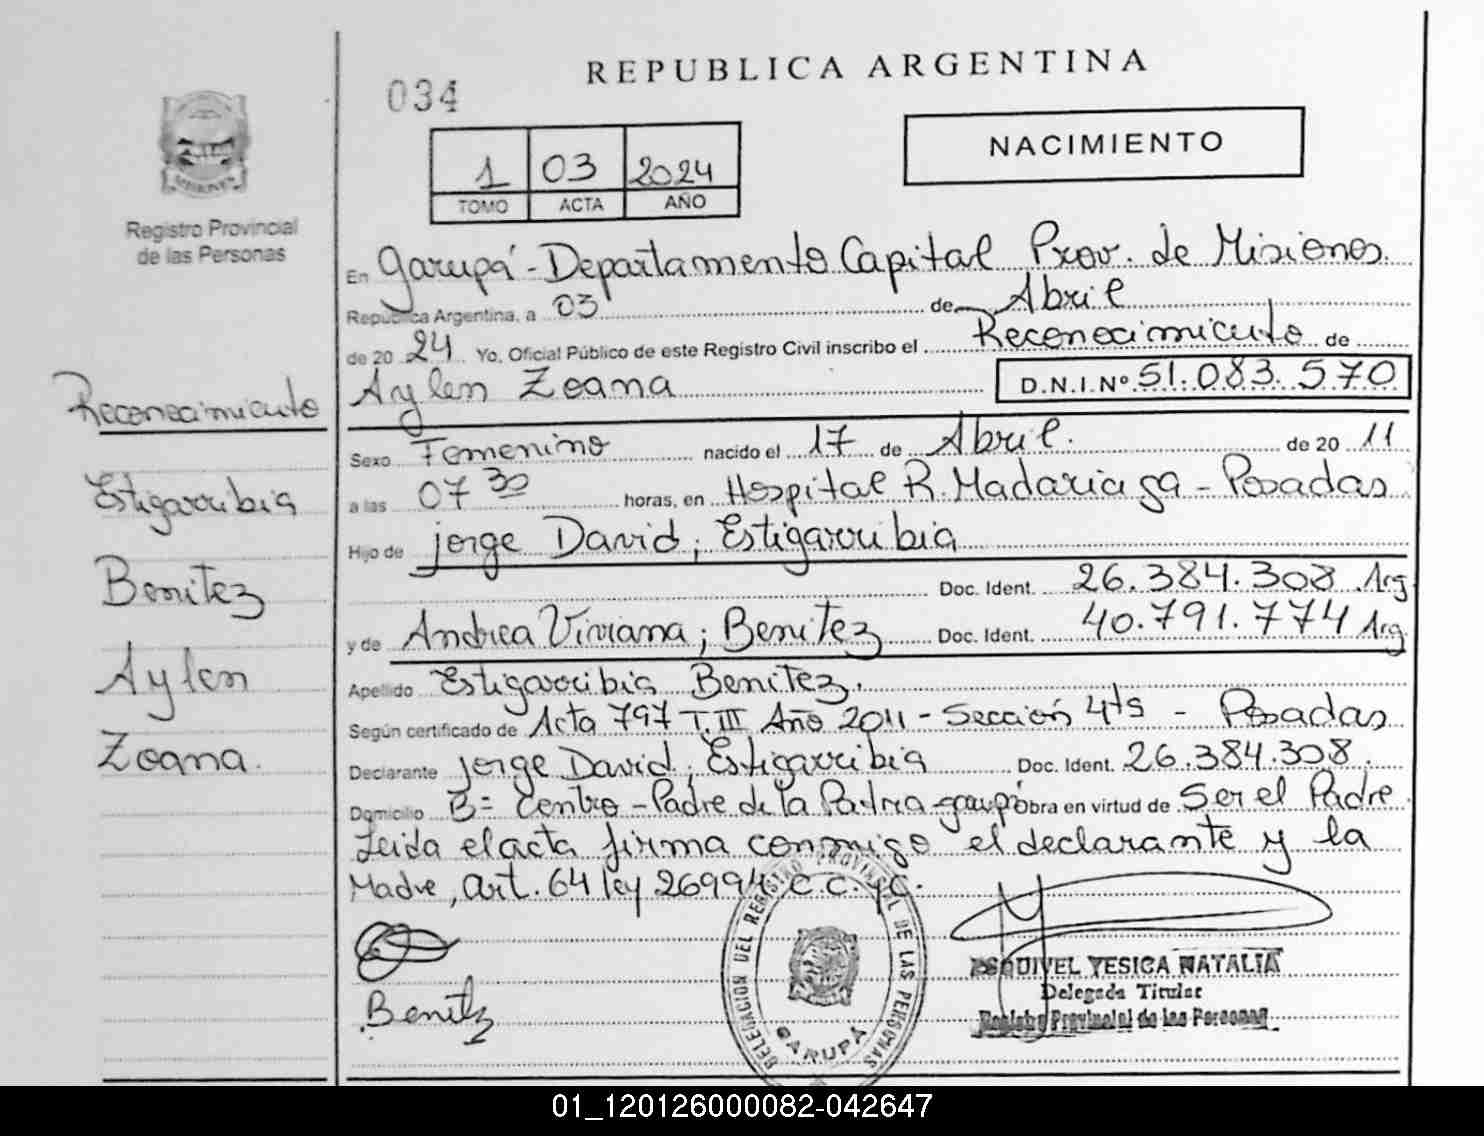 034
REPUBLICA ARGENTINA
NACIMIENTO
1 03 2024
TOMO ACTA AÑO
Registro Provincial
de las Personas
En Garupá - Departamento Capital Prov. de Misiones
República Argentina, a 03 de Abril
de 20 24 Yo, Oficial Público de este Registro Civil inscribo el Reconocimiento de
Aylen Zoana D.N.I. Nº 51.083.570
Reconocimiento
Sexo Femenino nacido el 17 de Abril. de 20 11
a las 07 30 horas, en Hospital R. Madariaga - Posadas
Estigarribia
Hijo de Jorge David; Estigarribia
Doc. Ident. 26.384.308 Arg
Benitez
y de Andrea Viviana; Benitez Doc. Ident. 40.791.774 Arg
Aylen
Apellido Estigarribia Benitez.
Según certificado de Acta 797 T. III Año 2011 - Sección 4ta - Posadas
Zoana.
Declarante Jorge David; Estigarribia Doc. Ident. 26.384.308.
Domicilio Bº Centro - Padre de la Patria - garupá obra en virtud de Ser el Padre
Leida el acta firma conmigo el declarante y la
Madre, art. 64 ley 26994 c.c. y
Benitz
DELEGACION DEL REGISTRO PROVINCIAL DE LAS PERSONAS
GARUPÁ
ESQUIVEL YESICA NATALIA
Delegada Titular
Registro Provincial de las Personas
01_120126000082-042647